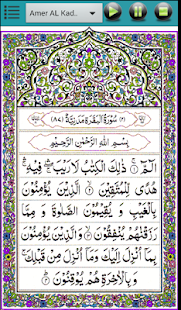 Amer AL Kad..
(٢) سُوْرَةُ الْبَقَرَةِ مَدَنِيَّةٌ (٨٧)
بِسْمِ اللّٰهِ الرَّحْمٰنِ الرَّحِيْمِ
الٓمّٓ ۝١ ذٰلِكَ الْكِتٰبُ لَا رَيْبَ ۛ فِيْهِ ۛ
هُدًى لِّلْمُتَّقِيْنَ ۝٢ الَّذِيْنَ يُؤْمِنُوْنَ
بِالْغَيْبِ وَيُقِيْمُوْنَ الصَّلٰوةَ وَمِمَّا
رَزَقْنٰهُمْ يُنْفِقُوْنَ ۝٣ وَالَّذِيْنَ يُؤْمِنُوْنَ
بِمَاۤ اُنْزِلَ اِلَيْكَ وَمَاۤ اُنْزِلَ مِنْ قَبْلِكَ ۚ
وَبِالْاٰخِرَةِ هُمْ يُوْقِنُوْنَ ۝٤